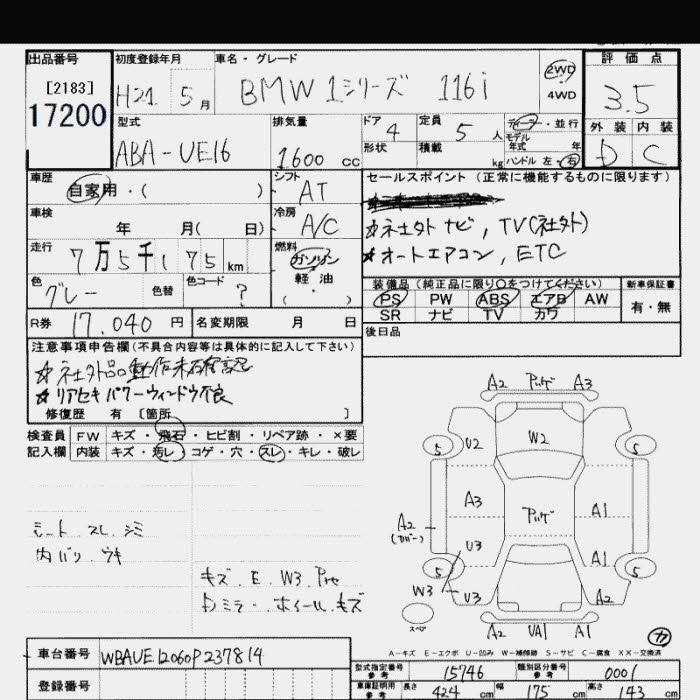 出品番号 初度登録年月 車名・グレード 2WD 4WD 評価点
[2183]
17200
H21 5月 BMW 1シリーズ 116i 3.5
型式 排気量 ドア 4 定員 5人 ディーラー・並行
モデル年式 年
形状 積載 kg ハンドル 左・右
外装 内装
ABA-UE16 1600cc D C
車歴 シフト セールスポイント（正常に機能するものに限ります）
自家用・（ ） AT
車検 冷房 ☆社外ナビ, TV(社外)
年 月（ 日） A/C ☆オートエアコン, ETC
走行 燃料
7万5千175km ガソリン
軽油
（・）
色 色替 色コード
グレー ?
装備品（純正品に限り○をつけてください） 新車保証書
PS PW ABS エアB AW 有・無
SR ナビ TV カワ
R券 17,040円 名変期限 月 日 後日品
注意事項申告欄（不具合内容等は具体的に記入して下さい）
☆社外品動作未確認
☆リアセキパワーウィンドウ不良
修復歴 有 〔箇所 〕
検査員 FW キズ・飛石・ヒビ割・リペア跡・×要
記入欄 内装 キズ・汚レ・コゲ・穴・スレ・キレ・破レ
シート スレ シミ
内バリ ウキ
キズ. E. W3
Dミラー. ホイール. キズ
A2 A3
5 U2 W2 5
A3 A1
A2
(カバー)
U3 A1
5 5
W3 U3 A2
スペア
A2 UA1 A1
カ
A-キズ E-エクボ U-凹み W-補修跡 S-サビ C-腐食 XX-交換済
車台番号 WBAUE12060P237814
登録番号
型式指定番号 参考 15746 類別区分番号 参考 0001
車庫証明用 参考 長さ 424 cm 幅 175 cm 高さ 143 cm